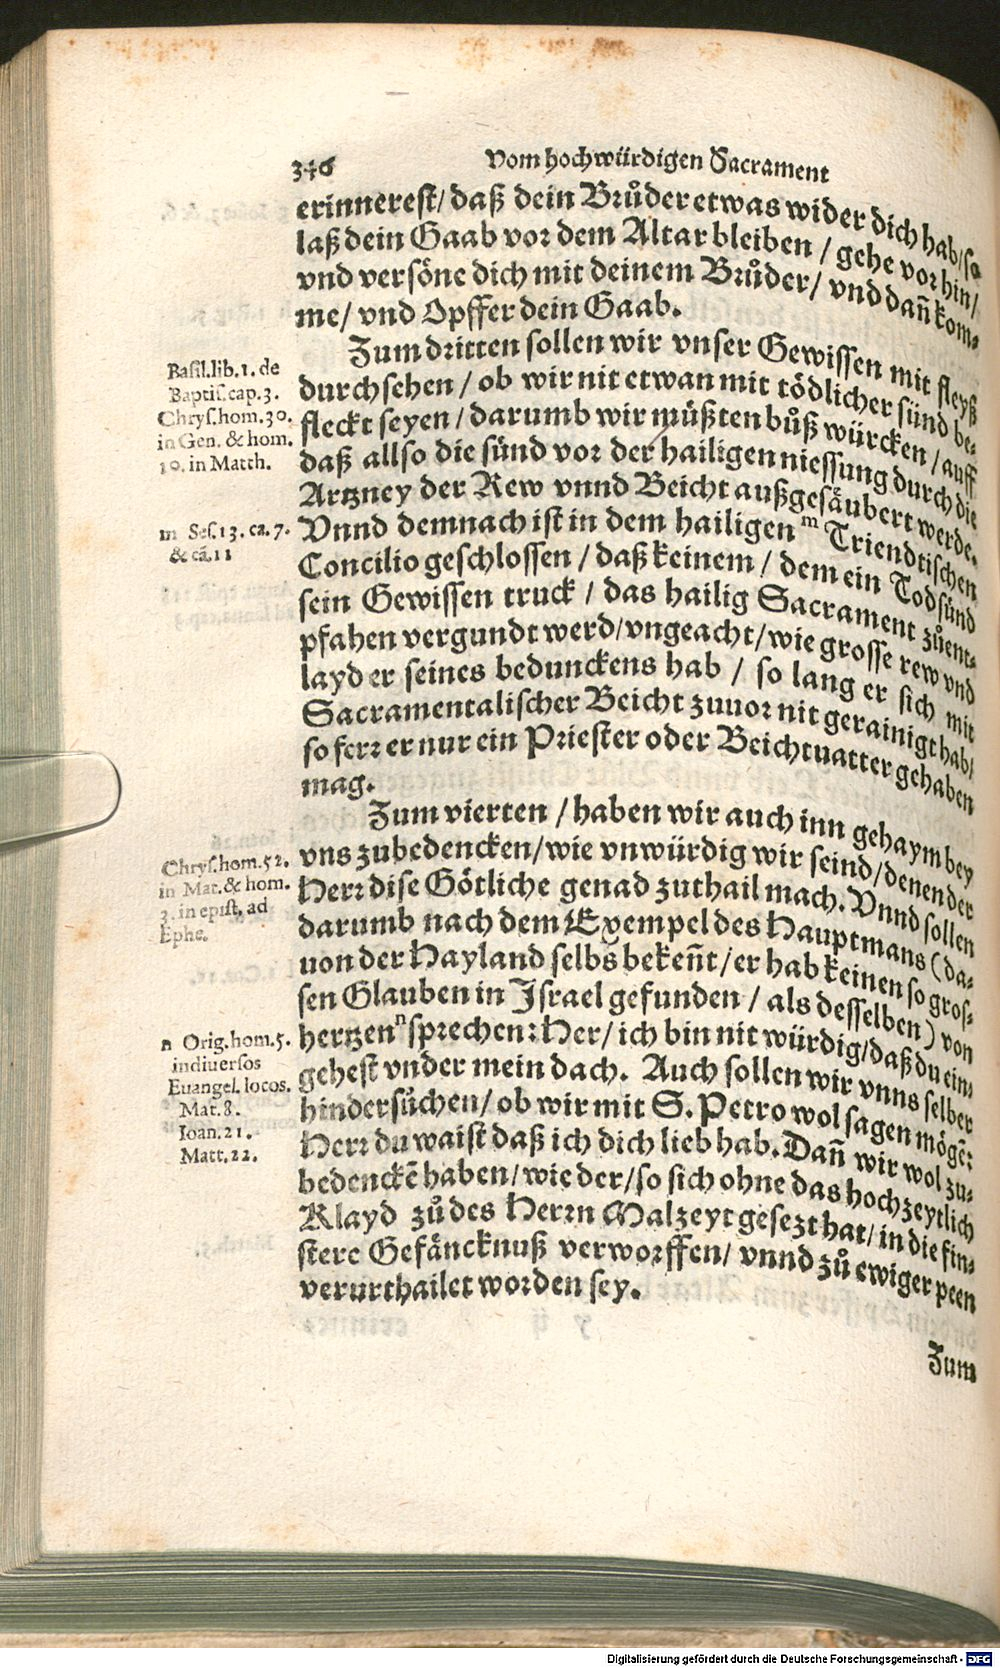 346 Vom hochwürdigen Sacrament
erinnerest/ daß dein Brůder etwas wider dich hab/ so
laß dein Gaab vor dem Altar bleiben / gehe vorhin/
vnd versöne dich mit deinem Brůder/ vnd dañ kom-
me/ vnd Opffer dein Gaab.
Zum dritten sollen wir vnser Gewissen mit fleyß
durchsehen / ob wir nit etwan mit tödlicher sünd be-
fleckt seyen / darumb wir müßten bůß würcken / auff
daß allso die sünd vor der hailigen niessung durch die
Artzney der Rew vnnd Beicht außgesäubert werde.
Vnnd demnach ist in dem hailigen m Triendtischen
Concilio geschlossen / daß keinem / dem ein Todsünd
sein Gewissen truck / das hailig Sacrament zůent-
pfahen vergundt werd/ vngeacht/ wie grosse rew vnd
layd er seines bedunckens hab / so lang er sich mit
Sacramentalischer Beicht zuuor nit gerainigt hab/
so ferr er nur ein Priester oder Beichtuatter gehaben
mag.
Zum vierten / haben wir auch inn gehaym bey
vns zubedencken/ wie vnwürdig wir seind/ denen der
Herr dise Götliche genad zuthail mach. Vnnd sollen
darumb nach dem Exempel des Hauptmans (da-
uon der Hayland selbs bekeñt/ er hab keinen so gros-
sen Glauben in Israel gefunden / als desselben) von
hertzen n sprechen: Her/ ich bin nit würdig/ daß du ein-
gehest vnder mein dach. Auch sollen wir vnns selber
hindersüchen/ ob wir mit S. Petro wol sagen mögẽ:
Herr du waist daß ich dich lieb hab. Dañ wir wol zu-
bedenckẽ haben/ wie der/ so sich ohne das hochzeytlich
Klayd zů des Herrn Malzeyt gesezt hat/ in die fin-
stere Gefäncknuß verworffen/ vnnd zů ewiger peen
verurthailet worden sey.
Zum
Basil. lib. 1. de
Baptis. cap. 3.
Chrys. hom. 30.
in Gen. & hom.
10. in Matth.
m Ses. 13. ca. 7.
& cã. 11
Chrys. hom. 52.
in Mat. & hom.
3. in epist. ad
Ephe.
n Orig. hom. 5.
in diuersos
Euangel. locos.
Mat. 8.
Ioan. 21.
Matt. 22.
Digitalisierung gefördert durch die Deutsche Forschungsgemeinschaft - DFG